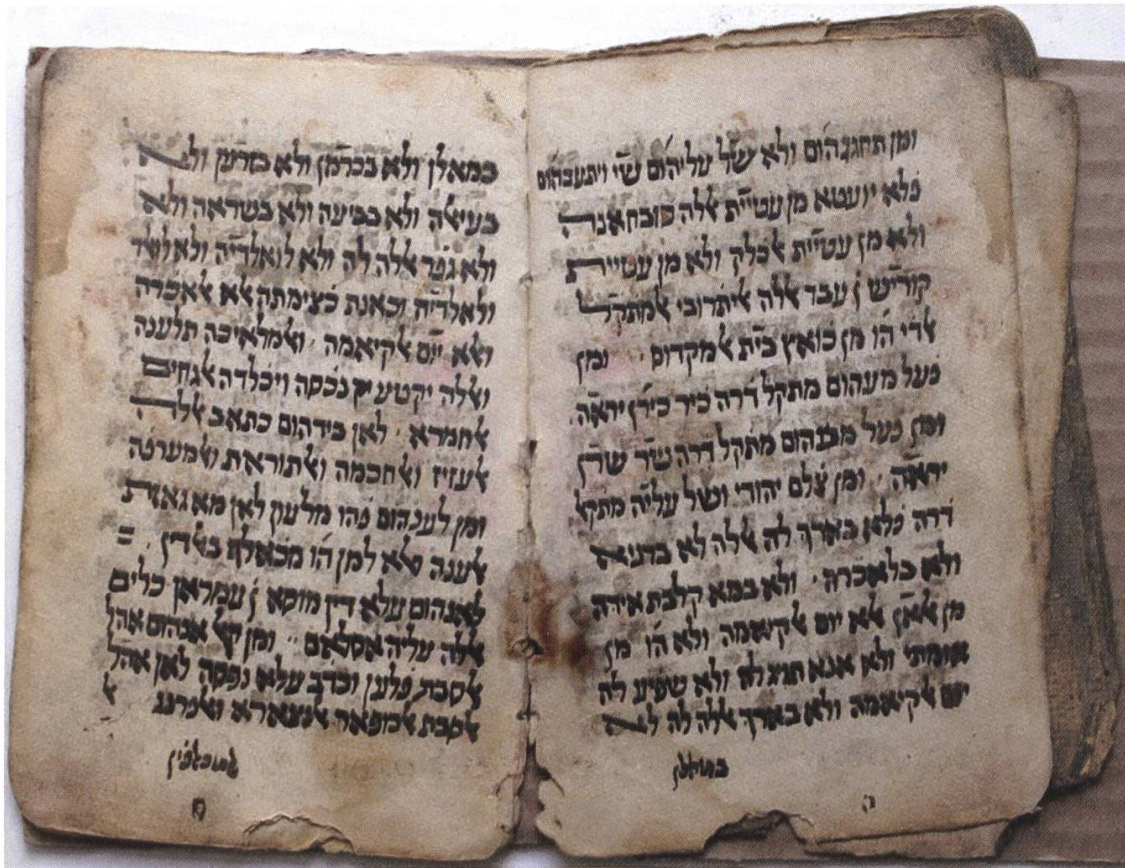 ומן תחננהום ולא של עליהום שי ויתעבהום
פלא יועטא מן עטיית ﭏלה סובחאנה
ולא מן עטיית ﭏכלק ולא מן עטיית
קורייש ן עבד ﭏלה ﭏיתרובי ﭏמתקל
ﭏדי הו מן כואץ בית ﭏמקדוס ומן
פעל מעהום מתקל דרה כיר כירן יראה
ומן פעל מנהום מתקל דרה שר שרן
יראה ומן צלם יהודי ושל עליה מתקﭏ
דרה פלא בארך לה ﭏלה לא בדניא
ולא בלאכרה ולא במא קלבת אידה
מן ﭏאן ﭏא יום ﭏקיאמה ולא הו מן
אומתי ולא אנא לה ולא שפיע לה
יום ﭏקיאמה ולא בארך ﭏלה לה לא
במאלן
במאלן ולא בכרמן ולא בזרען ולא
בעישה ולא בביעה ולא בשראה ולא
ולא גפר ﭏלה לה ולא לואלדיה ולא
ולאלדיה וכאנת כצימתה ﭏא ﭏאכרה
וﭏא יום ﭏקיאמה וﭏמלאיכה תלענה
וﭏלה יקטע נפסה ויכלדה ﭏגחים
ﭏחמרא לאן בידהום כתאב ﭏלה
ﭏעזיז וﭏחכמה וﭏתוראת וﭏמערפה
ומן לענהום פהו מלעון לאן מא גאזת
ﭏענה ﭏא למן הו מכאלף בﭏדין
לאנהום עלא דין מוסא ן עמראן כלים
ﭏלה עליה אסלאם ומן קאל אנהום אהל
ﭏסבת פלען וכדב עלא נפסה לאן אהל
ﭏסבת ﭏכופאר ﭏנצארא וﭏפרנג